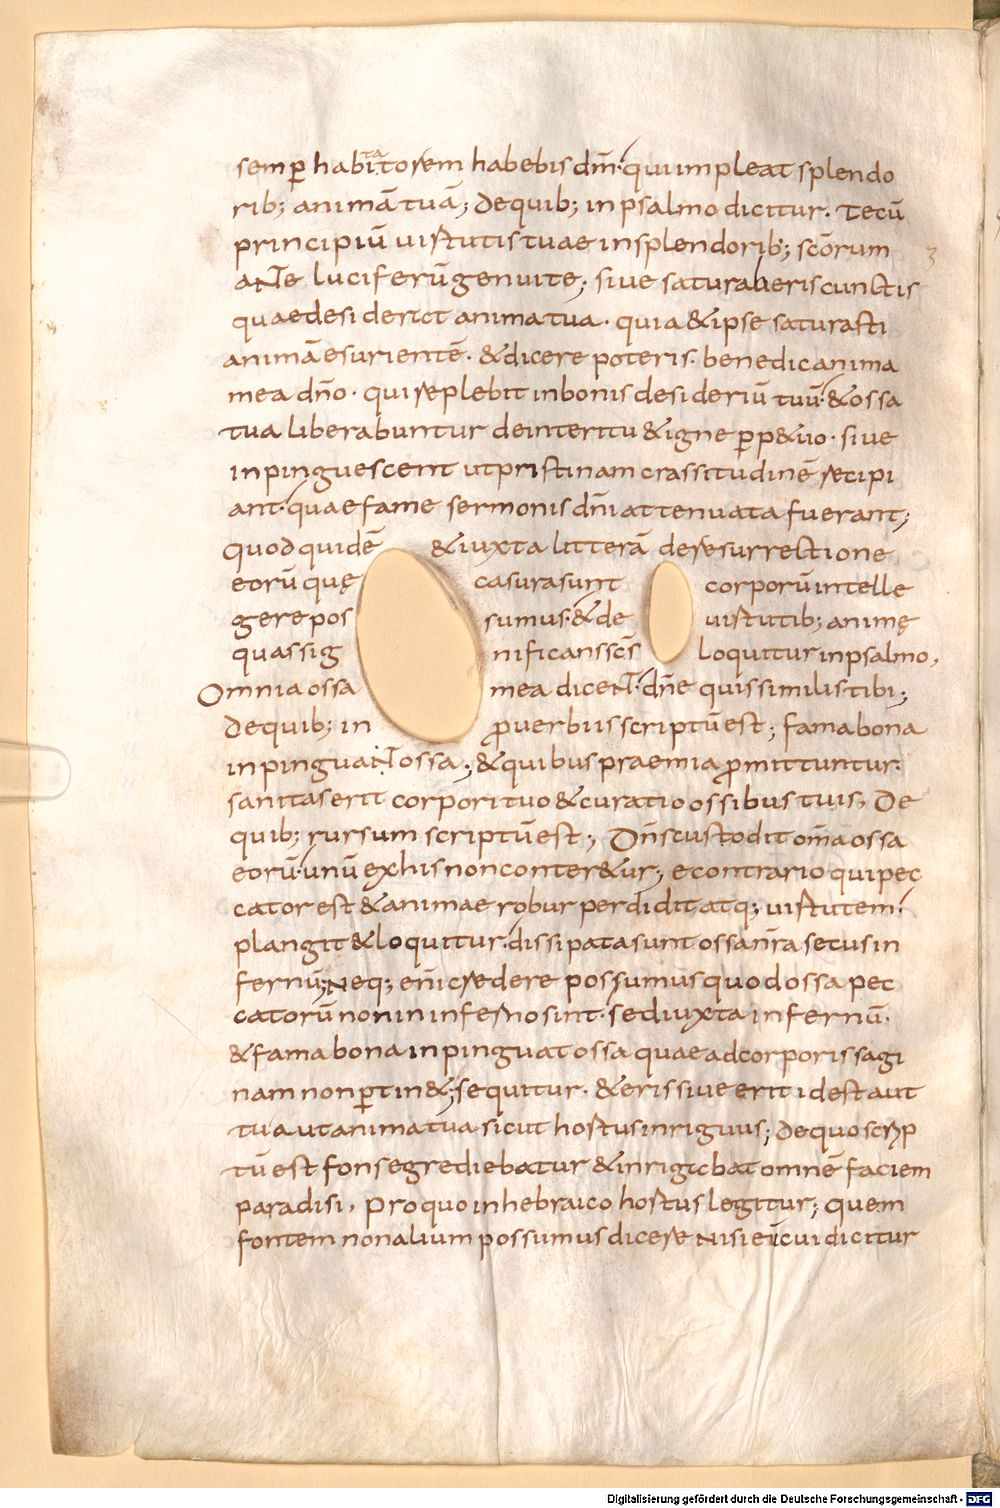 semp̄ habitatorem habebis dm̄. qui impleat splendo
rib; animā tuā; de quib; in psalmo dicitur. Tecū
principiū uirtutis tuae in splendorib; scōrum
aNTe luciferū genui te; siue saturaberis cunctis
quae desiderat anima tua. quia & ipse saturasti
animā esurientē. & dicere poteris. benedic anima
mea dn̄o. qui replebit in bonis desideriū tuū. & ossa
tua liberabuntur de interitu & igne perp&uo. siue
inpinguescent ut pristinam crassitudinē recipi
ant. quae fame sermonis dn̄i attenuata fuerant;
quod quidē & iuxta litterā de resurrectione
eorū quę casura sunt corporū intelle
gere possumus. & de uirtutib; animę
quas significans scs̄ loquitur in psalmo,
Omnia ossa mea diceNT. dn̄e quis similis tibi;
De quib; in ꝓuerbiis scriptū est; fama bona
inpinguaNT ossa; & quibus praemia ꝓmittuntur.
sanitas erit corpori tuo & curatio ossibus tuis, De
quib; rursum scriptū est; Dn̄s custodit om̄a ossa
eorū. unū ex his non conter&ur; e contrario qui pec
cator est & animae robur perdidit atq; uirtutem.
plangit & loquitur. dissipata sunt ossa nr̄a secus in
fernū; Neq; enī credere possumus quod ossa pec
catorū non in inferno sint. sed iuxta infernū.
& fama bona inpinguat ossa quae ad corporis sagi
nam non ꝑtin&; sequitur. & eris siue erit id est aut
tu aut anima tua sicut hortus inriguus; de quo scrip
tū est fons egrediebatur & inrigabat omnē faciem
paradisi, Pro quo in hebraico hortus legitur; quem
fontem non alium possumus dicere Nisi eū cui dicitur
Digitalisierung gefördert durch die Deutsche Forschungsgemeinschaft - DFG